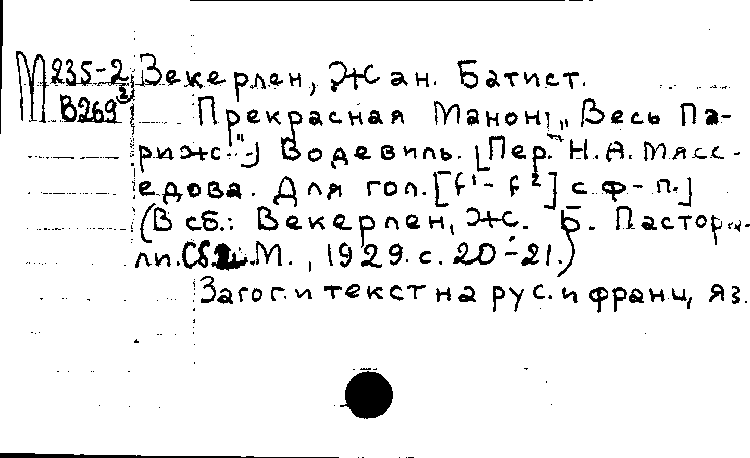 М 235-2 Векерлен, Жан. Батист.
В269 ② Прекрасная Манон! „Весь Па-
риж..."] Водевиль. [Пер. Н.А. Мясс-
едова. Для гол. [f¹-f²] с ф-п.]
(В сб.: Векерлен, Ж. Б. Пастора-
ли. Сб. М., 1929. с. 20-21.)
Загог. и текст на рус. и франц, яз.